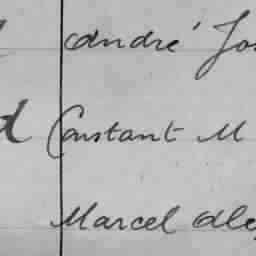 André Jos
d Constant M
Marcel Ale